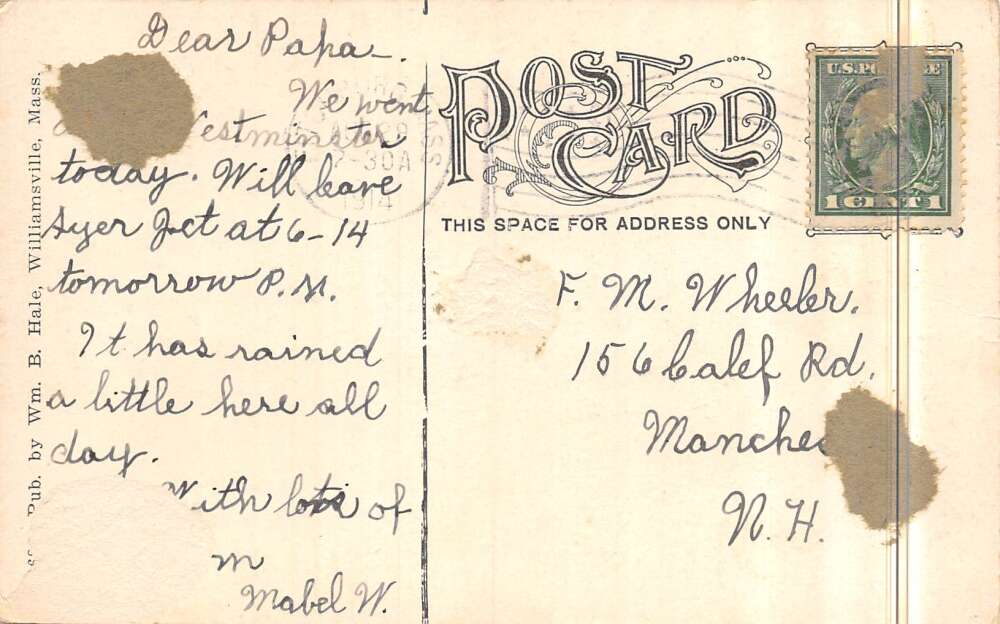 Dear Papa—
We went
Westminster
today. Will leave
Ayer Jct at 6-14
tomorrow P.M.
It has rained
a little here all
day.
With lots of
Mabel W.
Pub. by Wm. B. Hale, Williamsville, Mass.
POST
CARD
THIS SPACE FOR ADDRESS ONLY
U.S. POSTAGE
1 CENT 1
-30A
1914
F. M. Wheeler.
156 Calef Rd.
Manches
N. H.